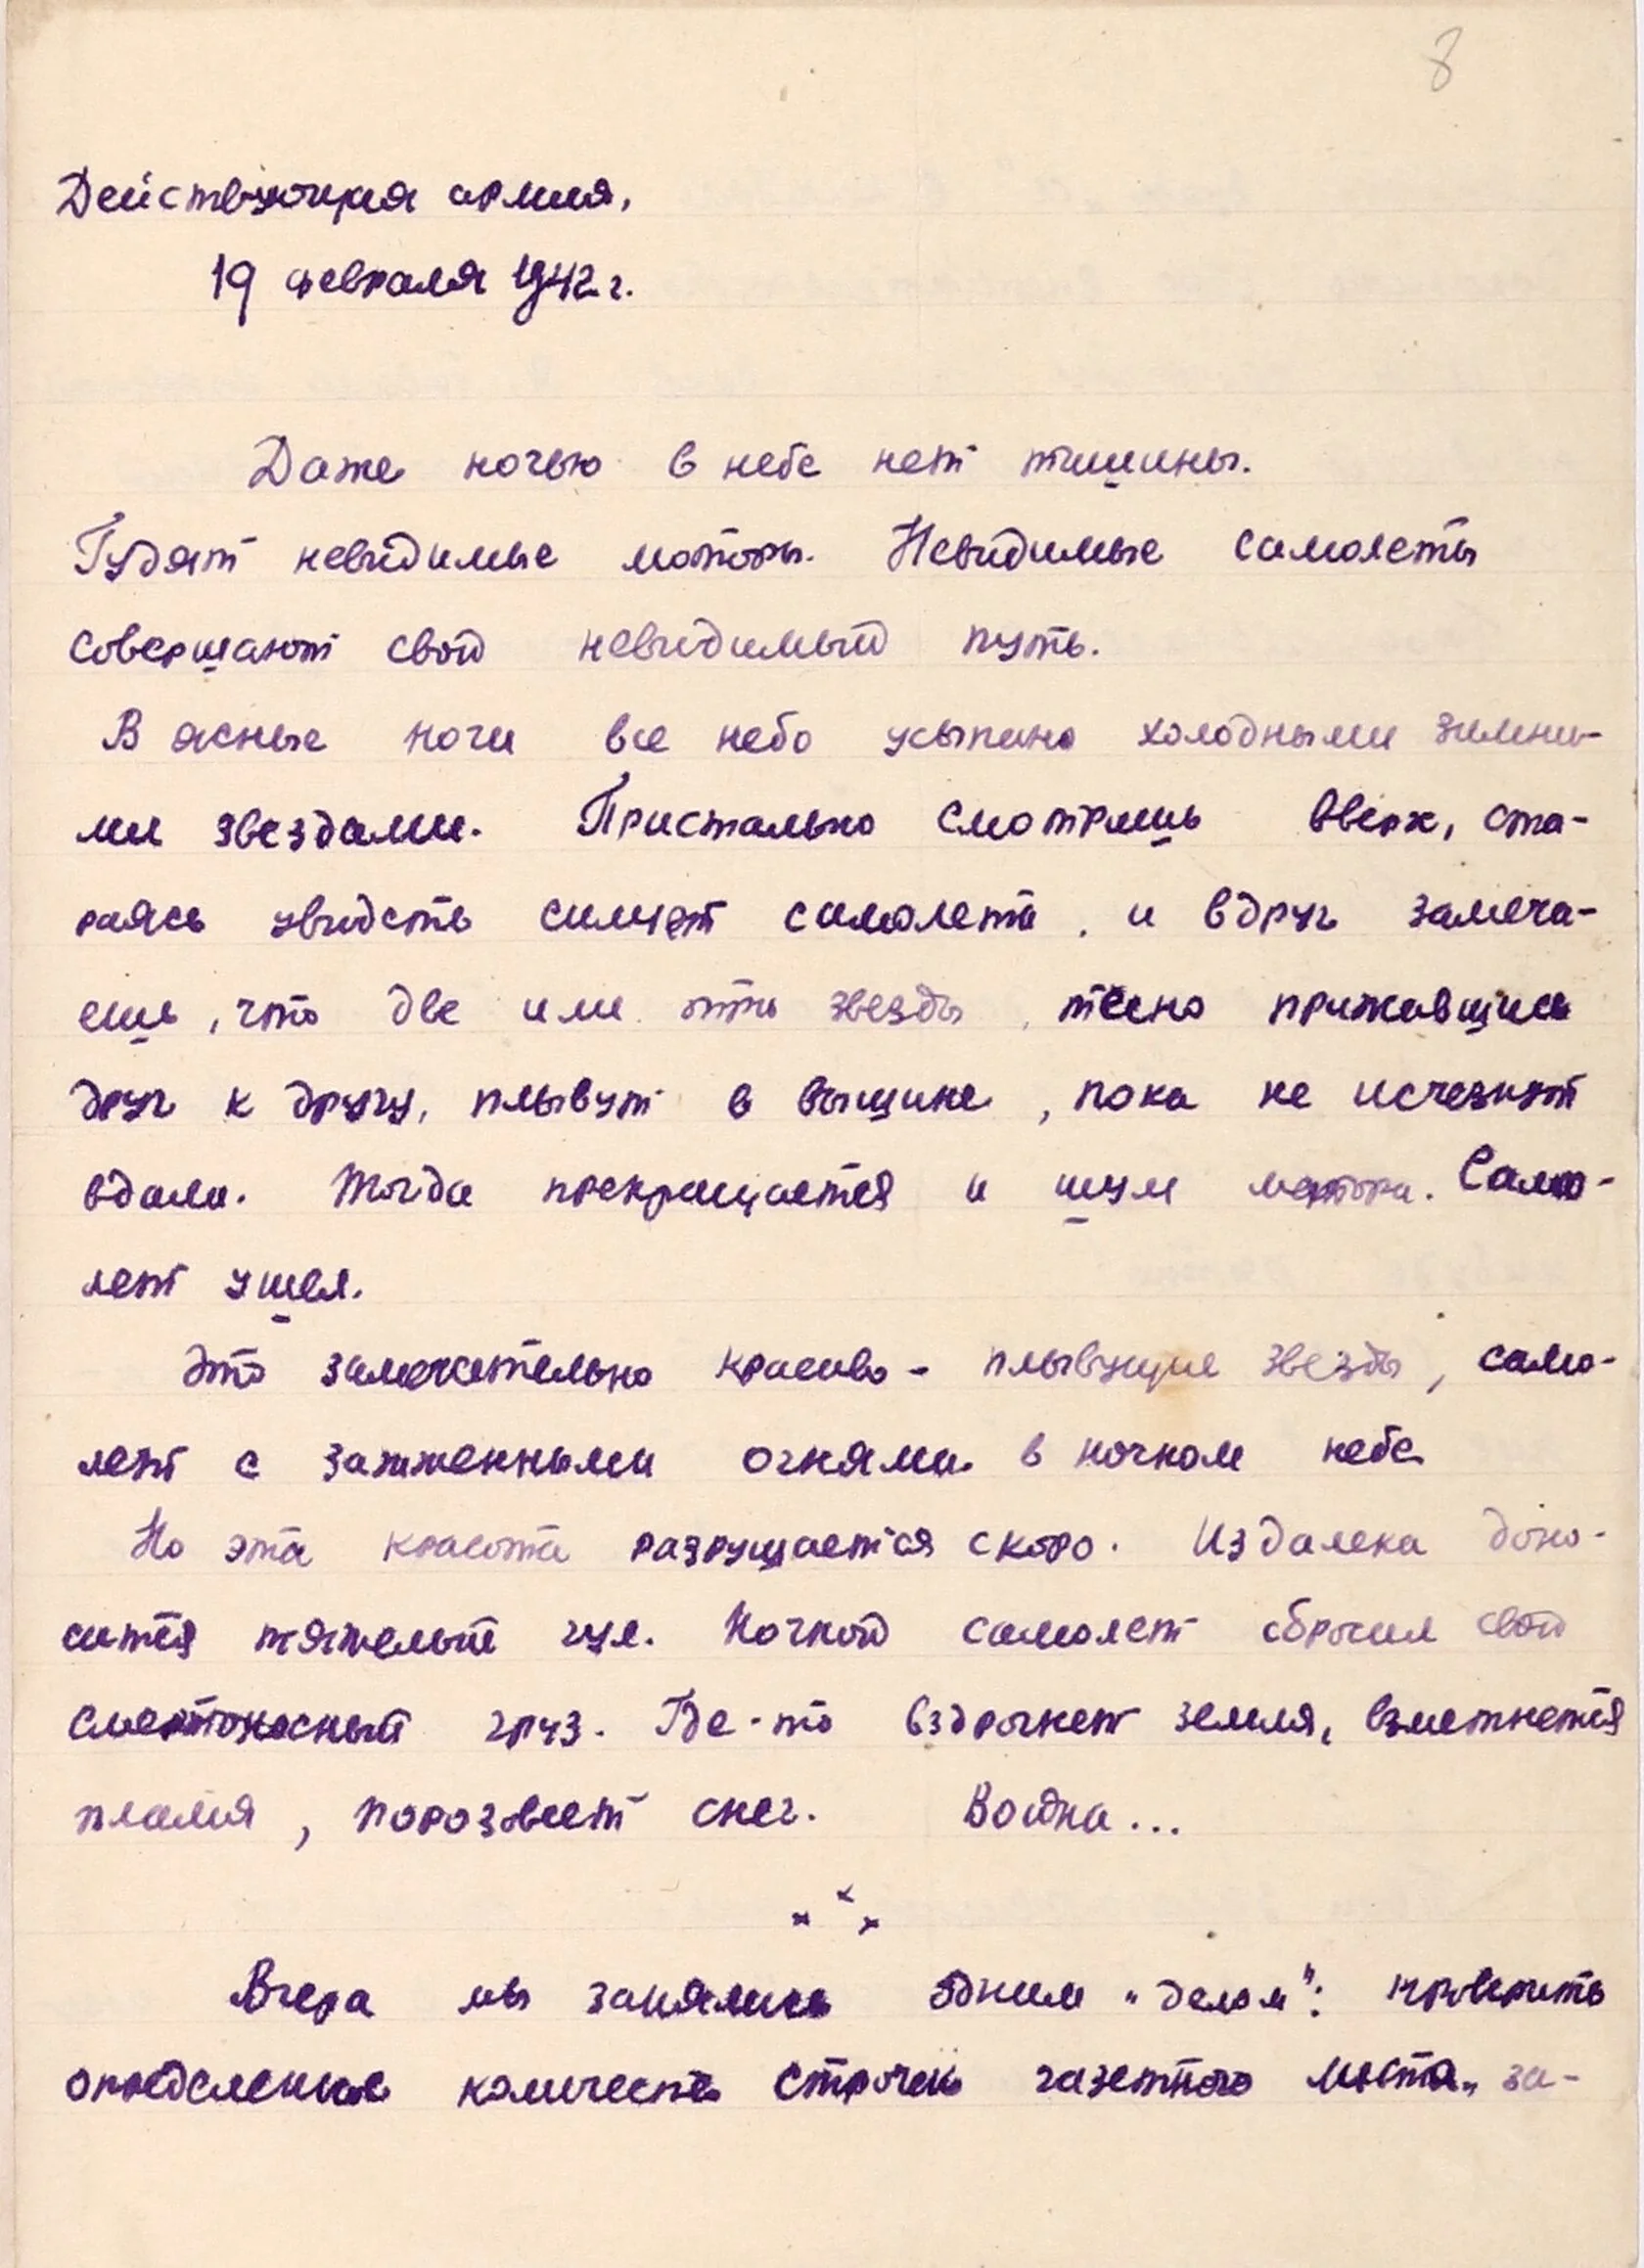 8
Действующая армия,
19 февраля 1942 г.
Даже ночью в небе нет тишины.
Гудят невидимые моторы. Невидимые самолеты
совершают свой невидимый путь.
В ясные ночи все небо усыпано холодными зимни-
ми звездами. Пристально смотришь вверх, ста-
раясь увидеть силуэт самолета, и вдруг замеча-
ешь, что две или три звезды, тесно прижавшись
друг к другу, плывут в вышине, пока не исчезнут
вдали. Тогда прекращается и шум мотора. Само-
лет ушел.
Это замечательно красиво - плывущие звезды, само-
лет с зажженными огнями в ночном небе
Но эта красота разрушается скоро. Издалека доно-
сится тяжелый гул. Ночной самолет сбросил свой
смертоносный груз. Где-то вздрогнет земля, взметнется
пламя, порозовеет снег. Война...
х х х
Вчера мы занялись одним "делом": проверить
определенное количество строчек газетного